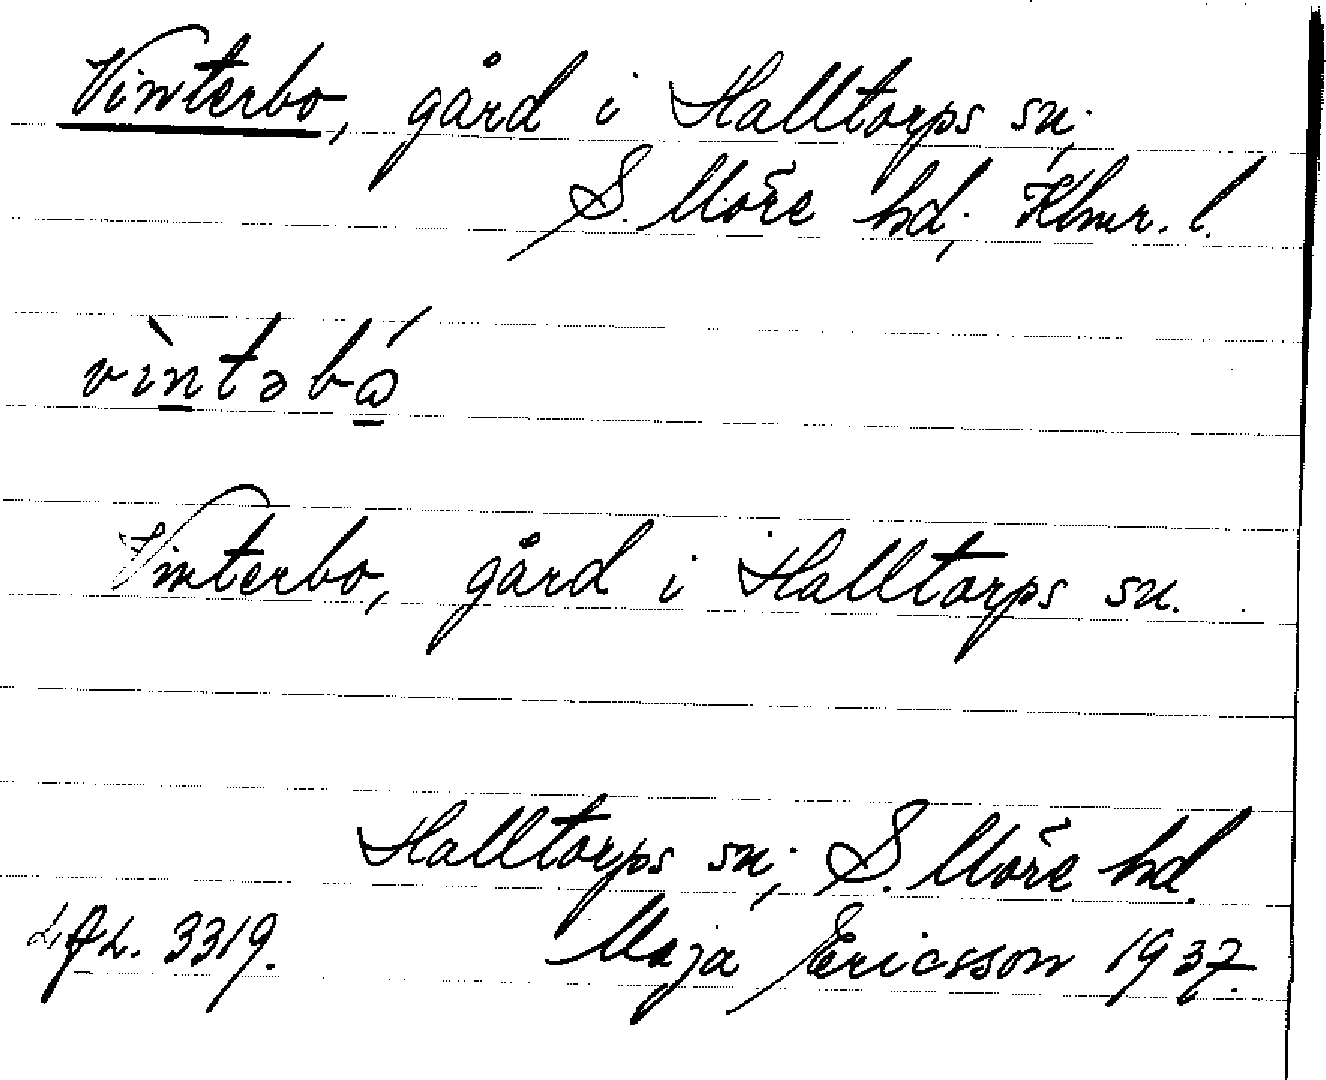 Vinterbo, gård i Halltorps sn.,
S. Möre hd., Klmr. l.
vìntəbó̱
Vinterbo, gård i Halltorps sn.
Halltorps sn., S. Möre hd.
3319. Maja Ericsson 1937.